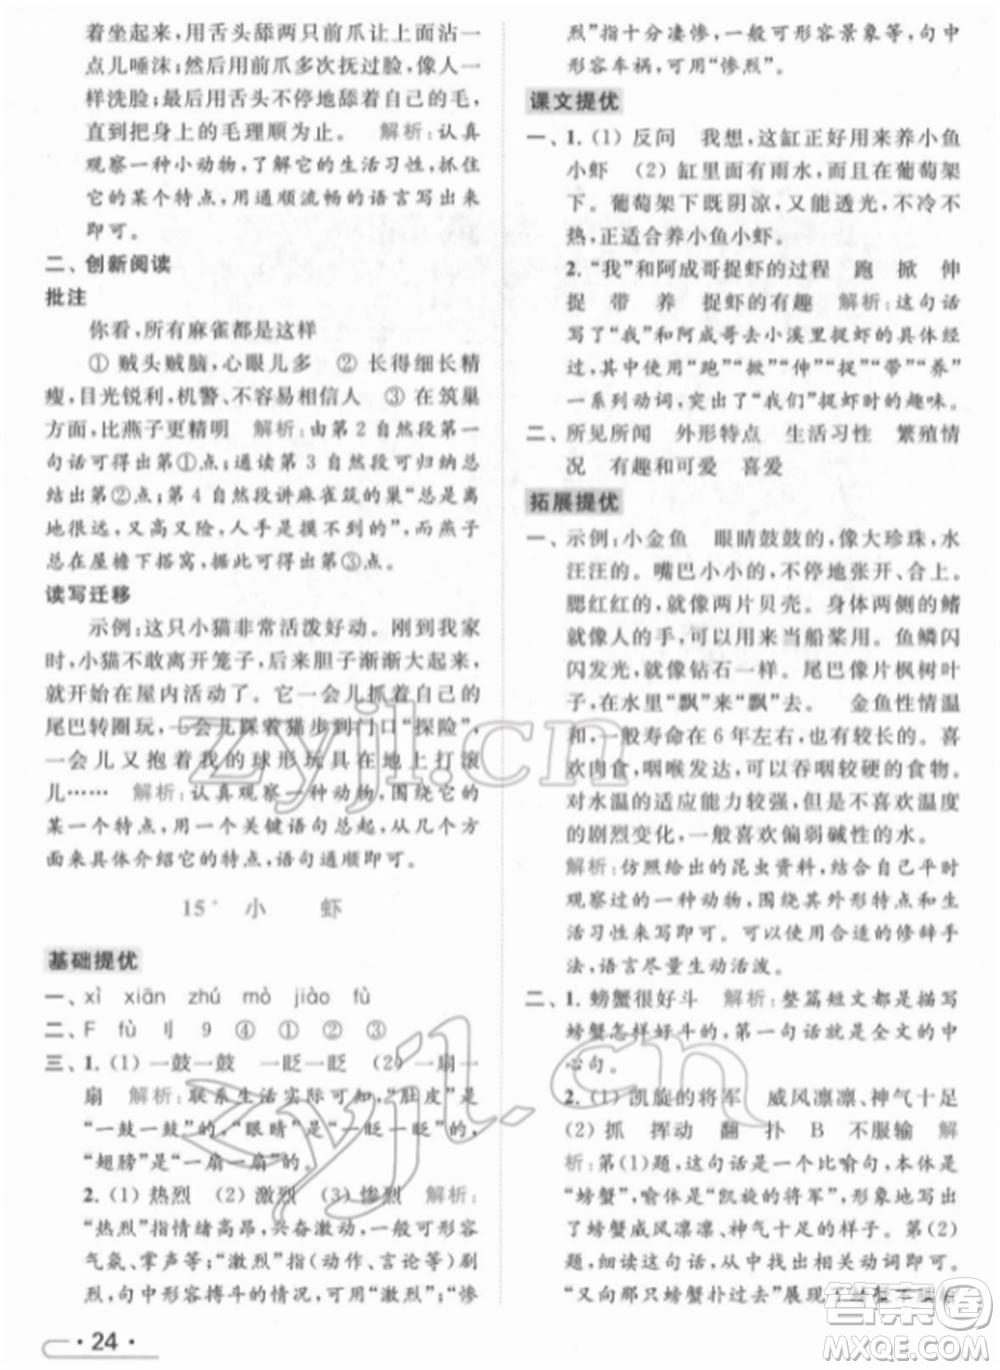 着坐起来,用舌头舔两只前爪让上面沾一
点儿唾沫;然后用前爪不停抚过脸,像人一
样洗脸;最后用舌头不停地舔着身上的毛,
直到把身上的毛理顺为止。 解析:认真
观察一种小动物,了解它的生活习性,抓住
它的某个特点,用通顺流畅的语言写出来
即可。
二、创新阅读
批注
你看,所有麻雀都是这样
① 贼头贼脑,心眼儿多 ② 长得细长精
瘦,目光锐利,机警、不容易相信人 ③ 在筑巢
方面,比燕子更精明 解析:由第2自然段的第
一句话可得出第①点;通读第3自然段的内容总
结得出第②点;第4自然段讲麻雀筑的巢“总是离
地很远,又高又险,人手是摸不到的”,而燕子
总在屋檐下搭窝,故可得出第③点。
读写迁移
示例:这只小猫非常活泼好动。刚到我家
时,小猫不敢离开笼子,后来胆子渐渐大起来,
就开始在屋内活动了。它一会儿抓着自己的
尾巴转圈玩,一会儿踩着猫步到门口“探险”,
一会儿又抱着我的球形玩具在地上打滚
儿…… 解析:认真观察一种动物,抓住它的
某一个特点,用一个关键语句总起,然后围绕这
来具体介绍它的特点,语句通顺即可。
15* 小 虾
基础提优
一、xì xiān zhú mò jiào fù
二、F fù 刂 9 ④ ① ② ③
三、1. (1) 一鼓一鼓 一眨一眨 (2) 一扇一
扇 解析:联系生活实际可知,“肚皮”是
“一鼓一鼓”的,“眼睛”是“一眨一眨”的,
“翅膀”是“一扇一扇”的。
2. (1) 热烈 (2) 激烈 (3) 惨烈 解析:
“热烈”指情绪高昂,兴奋激动,一般可形容
气氛、掌声等;“激烈”指(动作、言论等)剧
烈,句中形容搏斗的场景,可用“激烈”;“惨
烈”指十分凄惨,一般可形容景象等,句中
形容车祸,可用“惨烈”。
课文提优
一、1. (1) 反问 我想,这缸正好用来养小鱼
小虾 (2) 缸里面有雨水,而且在葡萄架
下。葡萄架下既阴凉,又能透光,不冷不
热,正适合养小鱼小虾。
2. “我”和阿成哥捉虾的过程 跑 掀 伸
捉 带 养 捉虾的有趣 解析:这句话
写了“我”和阿成哥去小溪里捉虾的具体经
过,其中运用“跑”“掀”“伸”“捉”“带”“养”
一系列动词,写出了“我们”捉虾时的趣味。
二、所见所闻 外形特点 生活习性 繁殖情
况 有趣和可爱 喜爱
拓展提优
一、示例:小金鱼 眼睛鼓鼓的,像大珍珠,水
汪汪的。嘴巴小小的,不停地张开、合上。
腮红红的,就像两片贝壳。身体两侧的鳍
就像人的手,游动时当船桨用。鱼鳞闪
闪发光,就像钻石一样。尾巴像片枫树叶
子,在水里“飘”来“飘”去。 金鱼性情温
和,一般寿命在6年左右,也有较长的。喜
欢肉食,咽喉发达,可以吞咽较硬的食物。
对水温的适应范围比较强,但是不喜欢温度
的剧烈变化,一般喜欢偏弱碱性的水。
解析:仿照给出的昆虫资料,结合自己平时
观察过的一种动物,从外形特点和生活习
性来写即可。可以使用合适的修辞手
法,语言尽量生动活泼。
二、1. 螃蟹很好斗 解析:整篇短文都是描写
螃蟹如何好斗的,第一句话就是全文的中
心句。
2. (1) 凯旋的将军 威风凛凛、神气十足
(2) 抓 挥动 翻 扑 B 不服输 解
析:第(1)题,这句话是个比喻句,本体是
“螃蟹”,喻体是“凯旋的将军”,形象地写出
了螃蟹威风凛凛、神气十足的样子。第(2)
题,细读这句话,从中找出相关动词即可。
“又向那只螃蟹扑过去”展现了
· 24 ·
zyjl.cn
zyjl.cn
答案圈
MXQE.COM